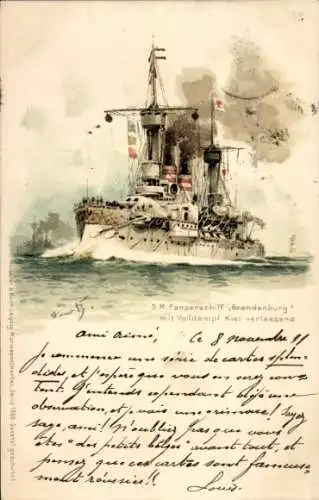 S.M. Panzerschiff „Brandenburg"
mit Volldampf Kiel verlassend
Ami aimé, Ce 8 novembre 99
Je commence une série de cartes splen-
dides, et j'espère que vous en serez con-
tent. J'entends cependant déjà une
observation, et je vais une grimace! Soyez
sage, ami! N'oubliez pas que vous
êtes "des petits belges" avant tout, et
pensez que ces cartes sont fameuse-
ment roussies!!
Louis.